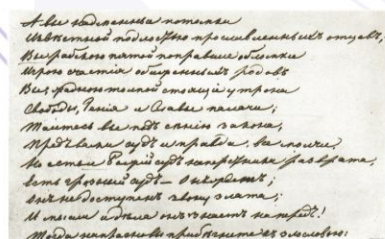 А вы надменные потомки
Извѣстной подлостью прославленныхъ отцовъ,
Вы рабскою пятой поправшіе обломки
Игрою счастія обиженныхъ родовъ
Вы жадною толпой стоящіе у трона
Свободы, Генія и Славы палачи;
Таитесь вы подъ сѣнію закона,
Предъ вами судъ и правда, все молчи!
Но есть и Божій судъ наперсники разврата,
Есть грозный судъ
недоступенъ звону злата;
И мысли и дѣла онъ знаетъ напредъ!
Тогда напрасно вы прибѣгните къ злословью: